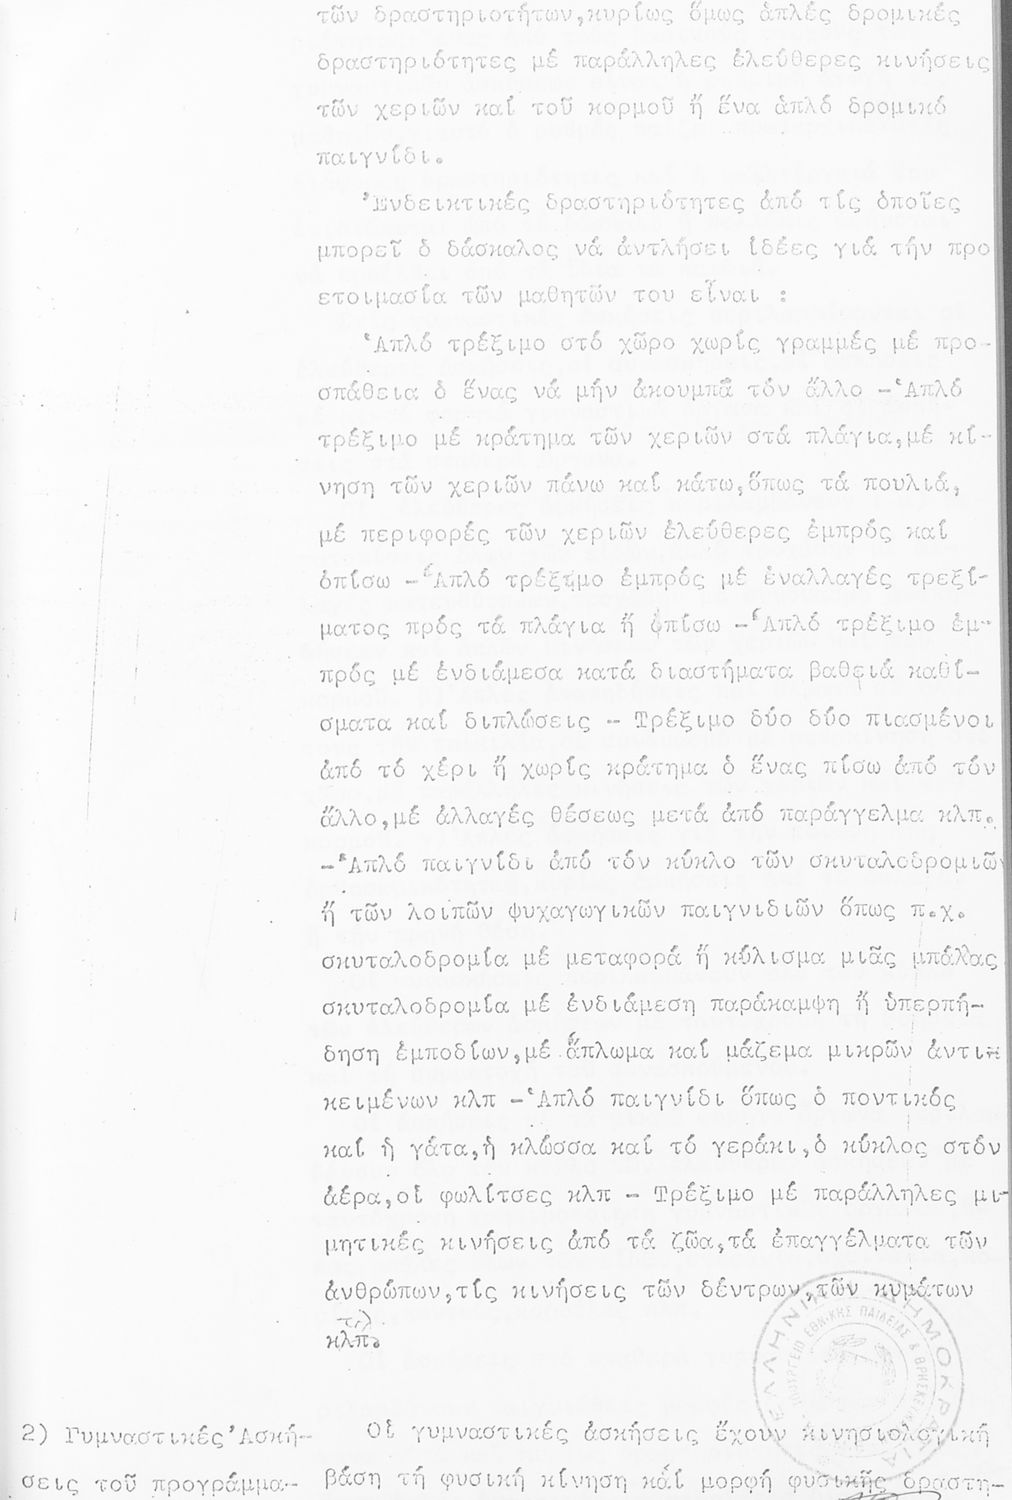 τῶν δραστηριοτήτων,κυρίως ὅμως ἁπλές δρομικές
δραστηριότητες μέ παράλληλες ἐλεύθερες κινήσεις
τῶν χεριῶν καί τοῦ κορμοῦ ἤ ἕνα ἁπλό δρομικό
παιγνίδι.
Ἐνδεικτικές δραστηριότητες ἀπό τίς ὁποῖες
μπορεῖ ὁ δάσκαλος νά ἀντλήσει ἰδέες γιά τήν προ
ετοιμασία τῶν μαθητῶν του εἶναι :
Ἁπλό τρέξιμο στό χῶρο χωρίς γραμμές μέ προ-
σπάθεια ὁ ἕνας νά μήν ἀκουμπᾶ τόν ἄλλο -Ἁπλό
τρέξιμο μέ κράτημα τῶν χεριῶν στά πλάγια,μέ κί-
νηση τῶν χεριῶν πάνω καί κάτω,ὅπως τά πουλιά,
μέ περιφορές τῶν χεριῶν ἐλεύθερες ἐμπρός καί
ὀπίσω -Ἁπλό τρέξιμο ἐμπρός μέ ἐναλλαγές τρεξί-
ματος πρός τά πλάγια ἤ ὀπίσω -Ἁπλό τρέξιμο ἐμ-
πρός μέ ἐνδιάμεσα κατά διαστήματα βαθειά καθί-
σματα καί διπλώσεις - Τρέξιμο δύο δύο πιασμένοι
ἀπό τό χέρι ἤ χωρίς κράτημα ὁ ἕνας πίσω ἀπό τόν
ἄλλο,μέ ἀλλαγές θέσεως μετά ἀπό παράγγελμα κλπ.
-Ἁπλό παιγνίδι ἀπό τόν κύκλο τῶν σκυταλοδρομιῶν
ἤ τῶν λοιπῶν ψυχαγωγικῶν παιγνιδιῶν ὅπως π.χ.
σκυταλοδρομία μέ μεταφορά ἤ κύλισμα μιᾶς μπάλας
σκυταλοδρομία μέ ἐνδιάμεση παράκαμψη ἤ ὑπερπή-
δηση ἐμποδίων,μέ ἅπλωμα καί μάζεμα μικρῶν ἀντι
κειμένων κλπ -Ἁπλό παιγνίδι ὅπως ὁ ποντικός
καί ἡ γάτα,ἡ κλώσσα καί τό γεράκι,ὁ κύκλος στόν
ἀέρα,οἱ φωλίτσες κλπ - Τρέξιμο μέ παράλληλες μι-
μητικές κινήσεις ἀπό τά ζῶα,τά ἐπαγγέλματα τῶν
ἀνθρώπων,τίς κινήσεις τῶν δέντρων,τῶν κυμάτων
κλπ.
2) Γυμναστικές Ἀσκή- Οἱ γυμναστικές ἀσκήσεις ἔχουν κινησιολογική
σεις τοῦ προγράμμα- βάση τή φυσική κίνηση καί μορφή φυσικῆς δραστη-
ΕΛΛΗΝΙΚΗ ΔΗΜΟΚΡΑΤΙΑ
ΥΠΟΥΡΓΕΙΟ ΕΘΝΙΚΗΣ ΠΑΙΔΕΙΑΣ & ΘΡΗΣΚΕΥΜΑΤΩΝ